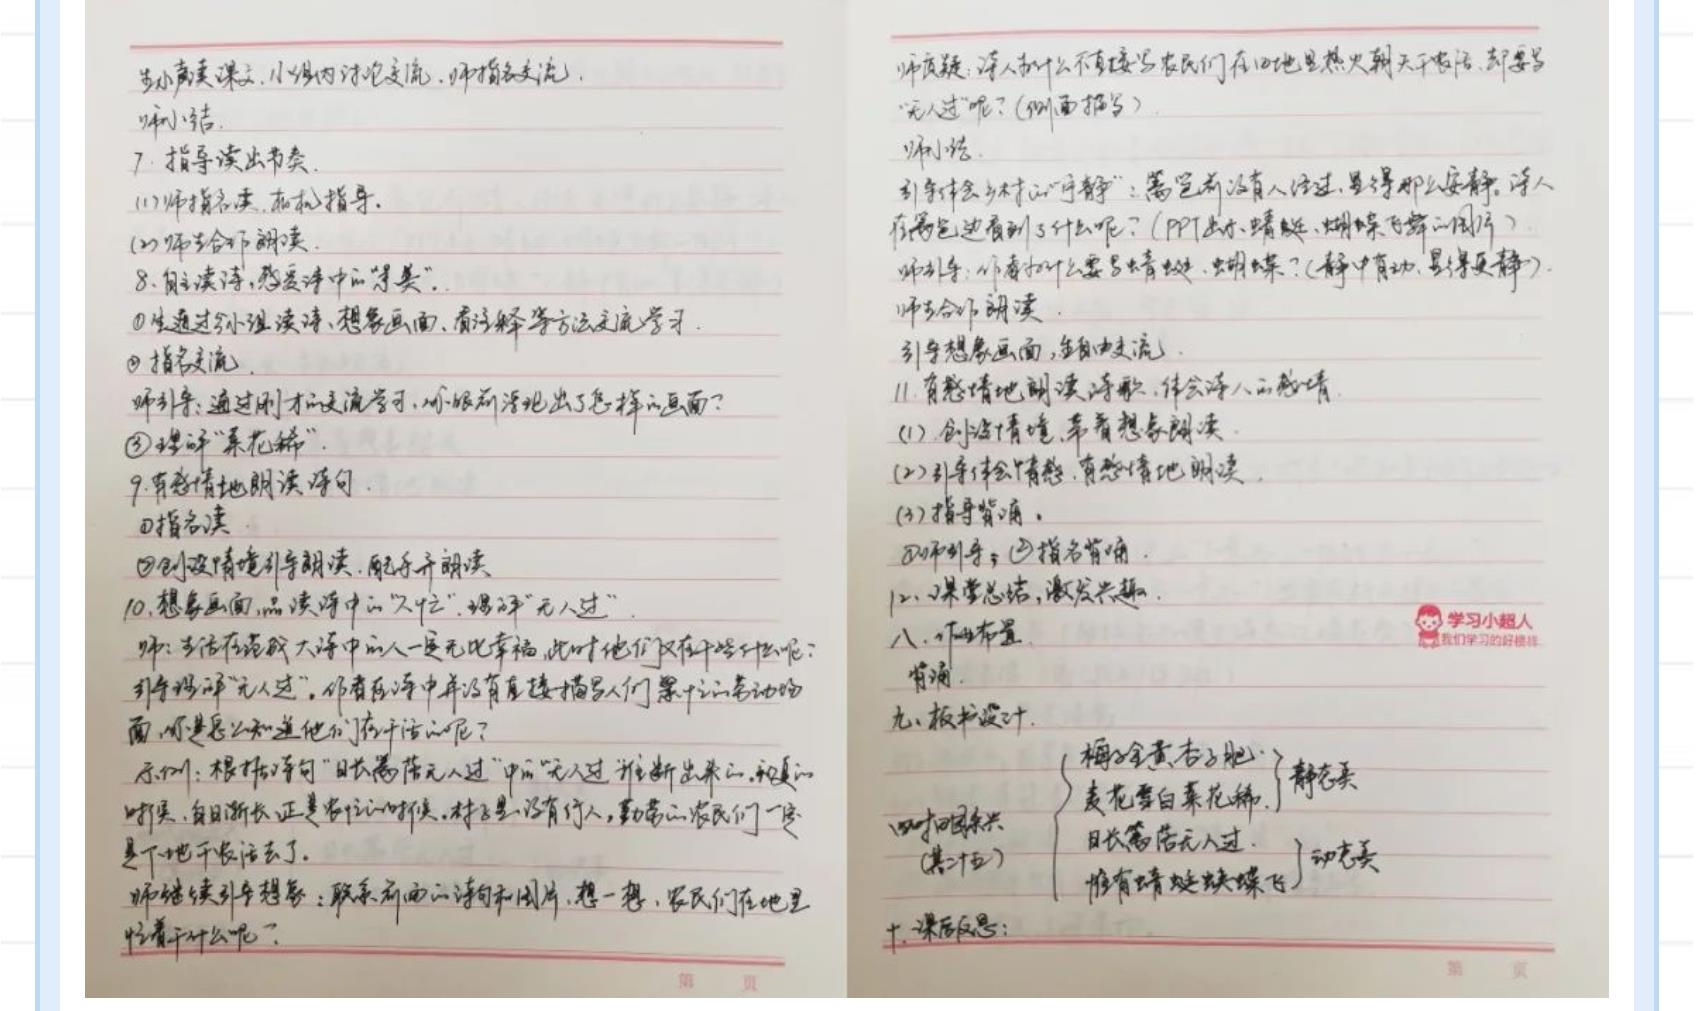 生小声读课文,小组内讨论交流,师指名交流.
师小结.
7. 指导读出节奏.
(1)师指名读,相机指导.
(2)师生合作朗读.
8.自主读诗,感受诗中的“景美”.
①生通过分小组读诗、想象画面、看注释等方法交流学习.
②指名交流.
师引导:通过刚才的交流学习,你眼前浮现出了怎样的画面?
③理解“菜花稀”.
9.有感情地朗读诗句.
①指名读
②创设情境引导朗读,配乐齐朗读
10.想象画面,品读诗中的“人忙”,理解“无人过”.
师:生活在范成大诗中的人一定无比幸福,此时他们又在干些什么呢?
引导理解“无人过”。作者在诗中并没有直接描写人们繁忙的劳动场
面,你是怎么知道他们在干活的呢?
示例:根据诗句“日长篱落无人过”中的“无人过”推断出来的,初夏的
时候,白日渐长,正是农忙的时候。村子里没有行人,勤劳的农民们一定
是下地干农活去了。
师继续引导想象:联系前面的诗句和图片,想一想,农民们在地里
忙着干什么呢?
第 页
师质疑:诗人为什么不直接写农民们在田地里热火朝天干农活,却要写
“无人过”呢?(侧面描写)
师小结.
引导体会乡村的“宁静”:篱笆前没有人经过,显得那么安静。诗人
在篱笆边看到了什么呢?(PPT出示蜻蜓、蝴蝶飞舞的图片)
师引导:作者为什么要写蜻蜓、蝴蝶?(静中有动,显得更静).
师生合作朗读.
引导想象画面,自由交流.
11.有感情地朗读诗歌,体会诗人的感情.
(1).创设情境,带着想象朗读.
(2)引导体会情感,有感情地朗读.
(3)指导背诵。
①师引导;②指名背诵.
12.课堂总结,激发兴趣.
八、作业布置.
背诵.
九、板书设计.
四时田园杂兴
(其二十五)
梅子金黄杏子肥.
麦花雪白菜花稀.
静态美
日长篱落无人过.
惟有蜻蜓蛱蝶飞
动态美
十、课后反思:
学习小超人
我们学习的好榜样
第 页